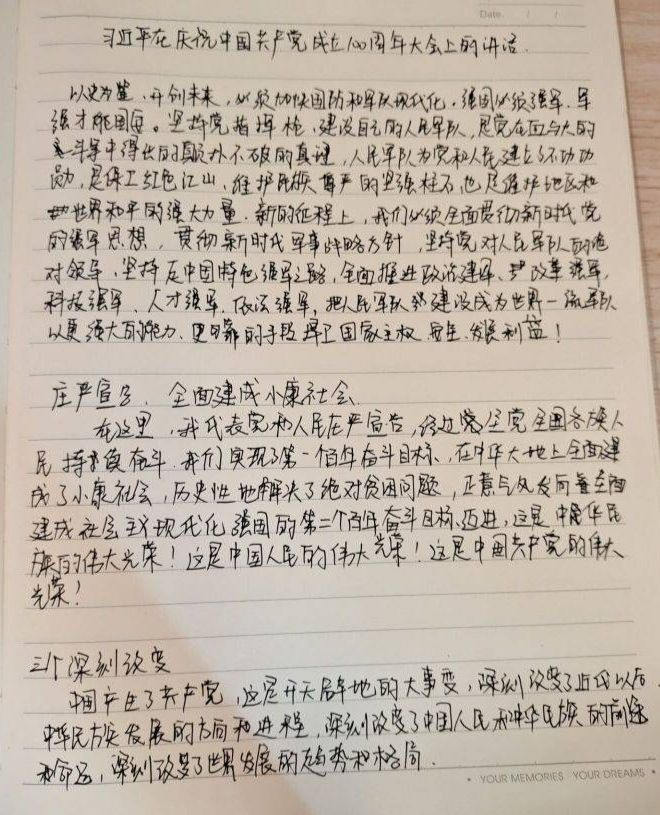 Date / /
习近平在庆祝中国共产党成立100周年大会上的讲话.
以史为鉴、开创未来,必须加快国防和军队现代化。强国必须强军、军
强才能国安。坚持党指挥枪、建设自己的人民军队,是党在血与火的
斗争中得出的颠扑不破的真理,人民军队为党和人民建立了不朽功
勋,是保卫红色江山、维护民族尊严的坚强柱石,也是维护地区和
世界和平的强大力量。新的征程上,我们必须全面贯彻新时代党
的强军思想,贯彻新时代军事战略方针,坚持党对人民军队的绝
对领导、坚持走中国特色强军之路,全面推进政治建军、改革强军、
科技强军、人才强军、依法强军,把人民军队建设成为世界一流军队
以更强大的能力、更可靠的手段捍卫国家主权、安全、发展利益!
庄严宣告,全面建成小康社会.
在这里,我代表党和人民庄严宣告,经过全党全国各族人
民持续奋斗,我们实现了第一个百年奋斗目标,在中华大地上全面建
成了小康社会,历史性地解决了绝对贫困问题,正意气风发向着全面
建成社会主义现代化强国的第二个百年奋斗目标迈进,这是中华民
族的伟大光荣!这是中国人民的伟大光荣!这是中国共产党的伟大
光荣!
三个深刻改变
中国产生了共产党,这是开天辟地的大事变,深刻改变了近代以后
中华民族发展的方向和进程,深刻改变了中国人民和中华民族的前途
和命运,深刻改变了世界发展的趋势和格局.
• YOUR MEMORIES YOUR DREAMS •